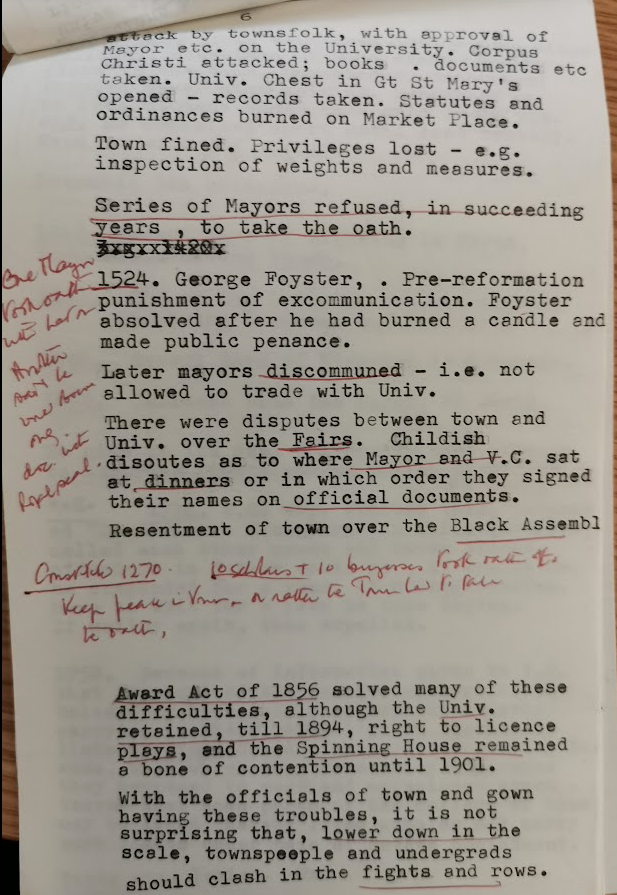 6
attack by townsfolk, with approval of
Mayor etc. on the University. Corpus
Christi attacked; books . documents etc
taken. Univ. Chest in Gt St Mary's
opened - records taken. Statutes and
ordinances burned on Market Place.
Town fined. Privileges lost - e.g.
inspection of weights and measures.
Series of Mayors refused, in succeeding
years , to take the oath.
One Mayor
took oath
1524. George Foyster, . Pre-reformation
punishment of excommunication. Foyster
absolved after he had burned a candle and
made public penance.
Another
Later mayors discommuned - i.e. not
allowed to trade with Univ.
There were disputes between town and
Univ. over the Fairs. Childish
disoutes as to where Mayor and V.C. sat
at dinners or in which order they signed
their names on official documents.
Resentment of town over the Black Assembl
1270. 10 scholars + 10 burgesses took oath to
keep peace in Town
Award Act of 1856 solved many of these
difficulties, although the Univ.
retained, till 1894, right to licence
plays, and the Spinning House remained
a bone of contention until 1901.
With the officials of town and gown
having these troubles, it is not
surprising that, lower down in the
scale, townspeople and undergrads
should clash in the fights and rows.